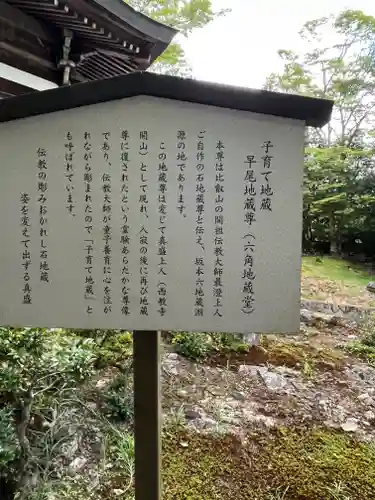 子育て地蔵
早尾地蔵尊(六角地蔵堂)
本尊は比叡山の開祖伝教大師最澄上人
ご自作の石地蔵尊と伝え、坂本六地蔵発
源の地であります。
この地蔵尊は変じて真盛上人(西教寺
開山)として現れ、入寂の後に再び地蔵
尊に復されたという霊験あらたかな尊像
であり、伝教大師が童子養育に心を注が
れながら彫まれたので「子育て地蔵」と
も呼ばれています。
伝教の彫みおかれし石地蔵
姿を変えて出ずる真盛